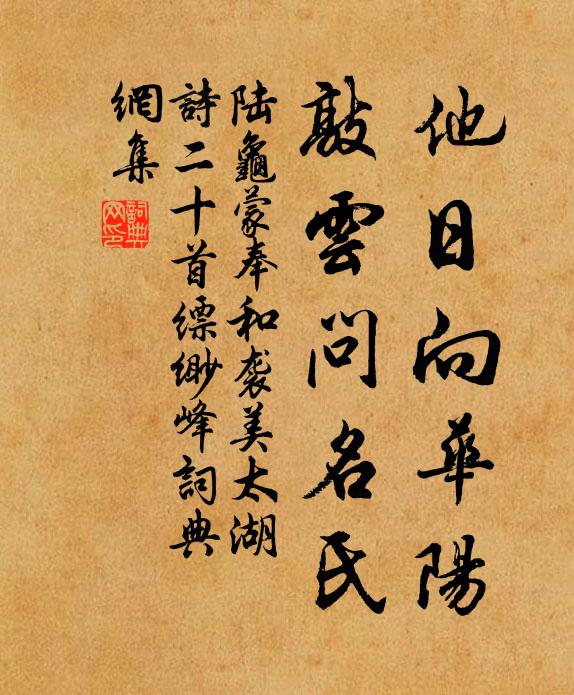 他日向華陽
敲雲問名氏
陆龜蒙奉和袭美太湖
詩二十首縹緲峰詞典
網集
詞典
网印